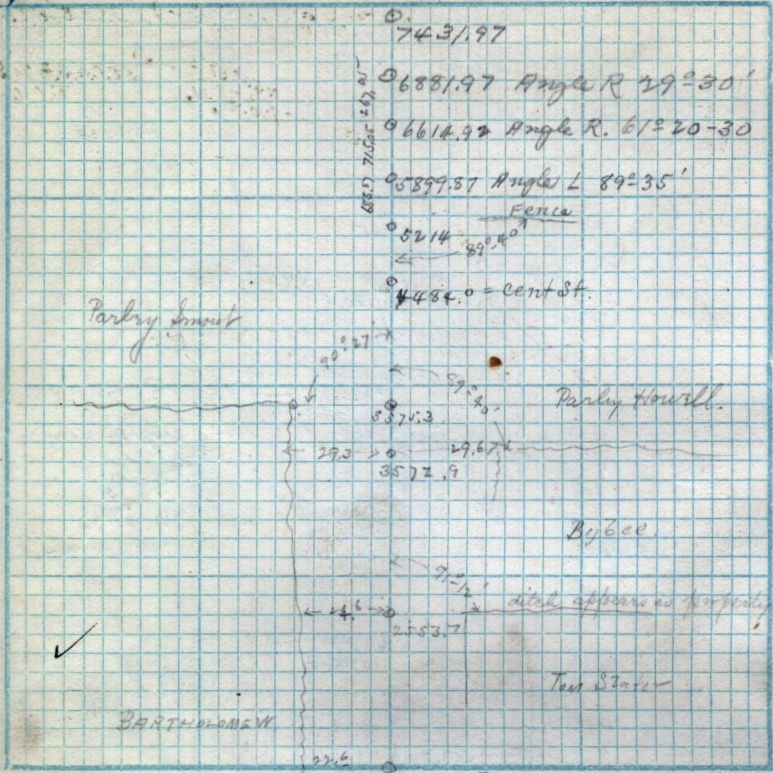 7431.97
6881.97 Angle R 29°-30'
267.05
6614.92 Angle R. 61°20-30
715.05
5899.87 Angle L 89°-35'
685.87
Fence
5214
89°-40'
4484.0 = Cent St.
Parley Smout
90°-27'
89°-40'
Parley Howell.
3575.3
29.3
29.67
3572.9
Bybee.
91°-12'
ditch appears as property
24.6
2553.7
Tom Slater
BARTHOLOMEW
22.6